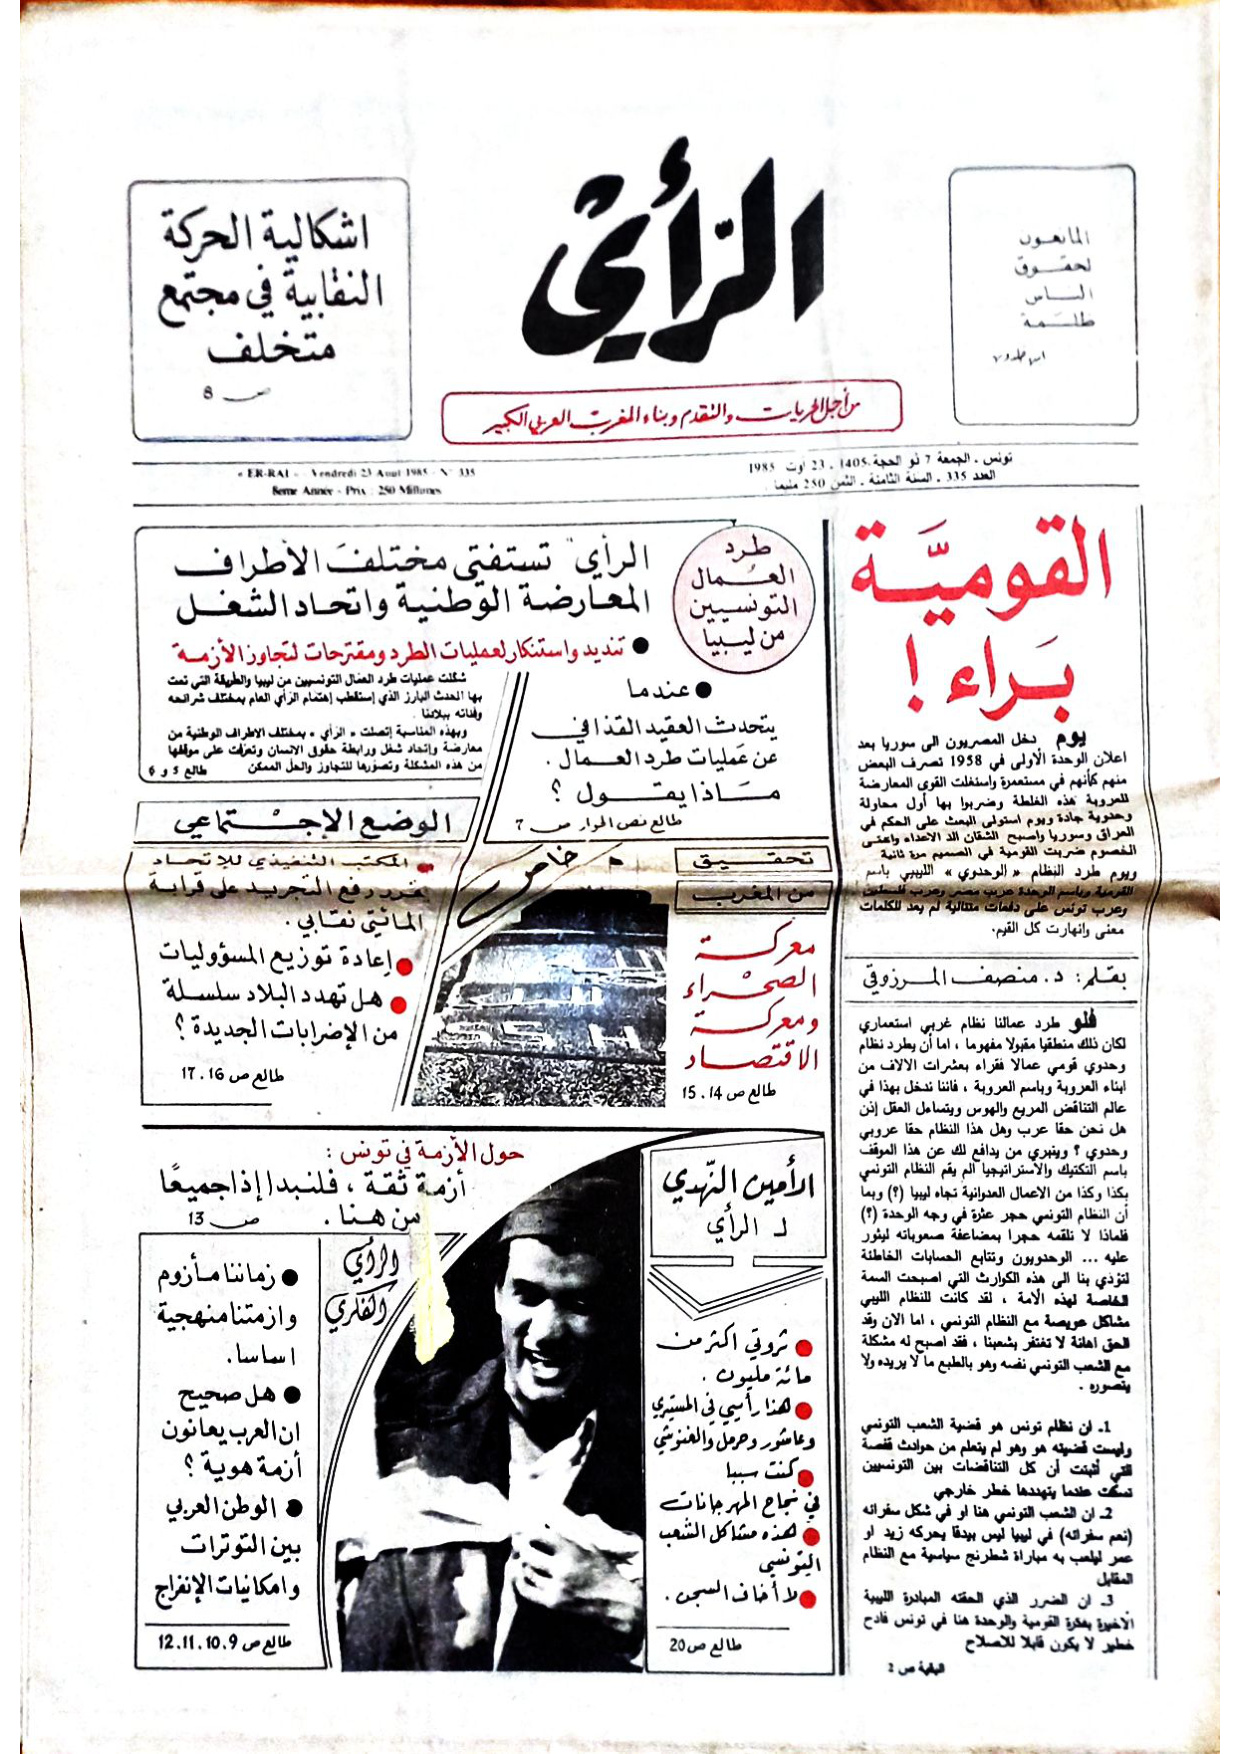 المانعون
لحقوق
الناس
ظلمة
ابن خلدون
الرأي
من أجل الحريات والتقدم وبناء المغرب العربي الكبير
اشكالية الحركة
النقابية في مجتمع
متخلف
ص 8
تونس . الجمعة 7 ذو الحجة 1405 . 23 اوت 1985
العدد 335 . السنة الثامنة . الثمن 250 مليما .
« ER-RAI » - Vendredi 23 Aout 1985 - N° 335
8eme Année - Prix : 250 Millimes
القوميّة
بَراء !
يوم دخل المصريون الى سوريا بعد
اعلان الوحدة الأولى في 1958 تصرف البعض
منهم كأنهم في مستعمرة واستغلت القوى المعارضة
للعروبة هذه الغلطة وضربوا بها أول محاولة
وحدوية جادة ويوم استولى البعث على الحكم في
العراق وسوريا واصبح الشقان الد الاعداء واعتى
الخصوم ضربت القومية في الصميم مرة ثانية
ويوم طرد النظام «الوحدوي» الليبي باسم
القومية وباسم الوحدة عرب مصر وعرب فلسطين
وعرب تونس على دفعات متتالية لم يعد للكلمات
معنى وانهارت كل القيم.
بقلم : د. منصف المرزوقي
فلو طرد عمالنا نظام غربي استعماري
لكان ذلك منطقيا مقبولا مفهوما ، اما أن يطرد نظام
وحدوي قومي عمالا فقراء بعشرات الالاف من
ابناء العروبة وباسم العروبة ، فاننا ندخل بهذا في
عالم التناقض المريع والهوس ويتساءل العقل إذن
هل نحن حقا عرب وهل هذا النظام حقا عروبي
وحدوي ؟ وينبري من يدافع لك عن هذا الموقف
باسم التكتيك والاستراتيجيا الم يقم النظام التونسي
بكذا وكذا من الاعمال العدوانية تجاه ليبيا (؟) وبما
أن النظام التونسي حجر عثرة في وجه الوحدة (؟)
فلماذا لا نلقمه حجرا بمضاعفة صعوباته ليثور
عليه ... الوحدويون وتتابع الحسابات الخاطئة
لتؤدي بنا الى هذه الكوارث التي اصبحت السمة
الخاصة لهذه الأمة ، لقد كانت للنظام الليبي
مشاكل عويصة مع النظام التونسي ، اما الان وقد
الحق اهانة لا تغتفر بشعبنا ، فقد اصبح له مشكلة
مع الشعب التونسي نفسه وهو بالطبع ما لا يريده ولا
يتصوره .
1ـ ان نظام تونس هو قضية الشعب التونسي
وليست قضيته هو وهو لم يتعلم من حوادث قفصة
التي أثبتت أن كل التناقضات بين التونسيين
تسكت عندما يتهددها خطر خارجي
2ـ ان الشعب التونسي هنا او في شكل سفرائه
(نعم سفرائه) في ليبيا ليس بيدقا يحركه زيد او
عمر ليلعب به مباراة شطرنج سياسية مع النظام
المقابل
3ـ ان الضرر الذي الحقته المبادرة الليبية
الأخيرة بفكرة القومية والوحدة هنا في تونس فادح
خطير لا يكون قابلا للاصلاح
البقية ص 2
طرد
العمال
التونسيين
من ليبيا
الرأي" تستفتي مختلف الأطراف
المعارضة الوطنية واتحاد الشغل
● تنديد واستنكار لعمليات الطرد ومقترحات لتجاوز الأزمة
شكلت عمليات طرد العمال التونسيين من ليبيا والطريقة التي تمت
بها الحدث البارز الذي إستقطب إهتمام الرأي العام بمختلف شرائحه
وفئاته ببلادنا .
وبهذه المناسبة إتصلت « الرأي » بمختلف الاطراف الوطنية من
معارضة وإتحاد شغل ورابطة حقوق الانسان وتعرّفت على موقفها
من هذه المشكلة وتصوّرها للتجاوز والحل الممكن
طالع 5 و 6
● عندما
يتحدث العقيد القذافي
عن عمليات طرد العمال .
مَاذا يقول ؟
طالع نص الحوار ص 7
الوضع الإجتماعي
● المكتب التنفيذي للإتحاد
يقرر رفع التجريد على قرابة
المائتي نقابي .
● إعادة توزيع المسؤوليات
● هل تهدد البلاد سلسلة
من الإضرابات الجديدة ؟
طالع ص 16 . 17
خاص
تحقيق
من المغرب
معركة
الصحراء
ومعركة
الاقتصاد
طالع ص 14 . 15
حول الأزمة في تونس :
أزمة ثقة ، فلنبدا إذا جميعًا
من هنا .
ص 13
الأمين النّهدي
لـ الرأي
● ثروتي اكثر من
مائة مليون .
● هذا رأيي في المستيري
وعاشور وحرمل والغنوشي
● كنت سببا
في نجاح المهرجانات
● هذه مشاكل الشعب
التونسي
● لا أخاف السجن .
طالع ص 20
الرأي
الفكري
● زماننا مأزوم
وازمتنا منهجية
اساسا.
● هل صحيح
ان العرب يعانون
أزمة هوية ؟
● الوطن العربي
بين التوترات
وامكانيات الإنفراج
طالع ص 9 . 10 . 11 . 12